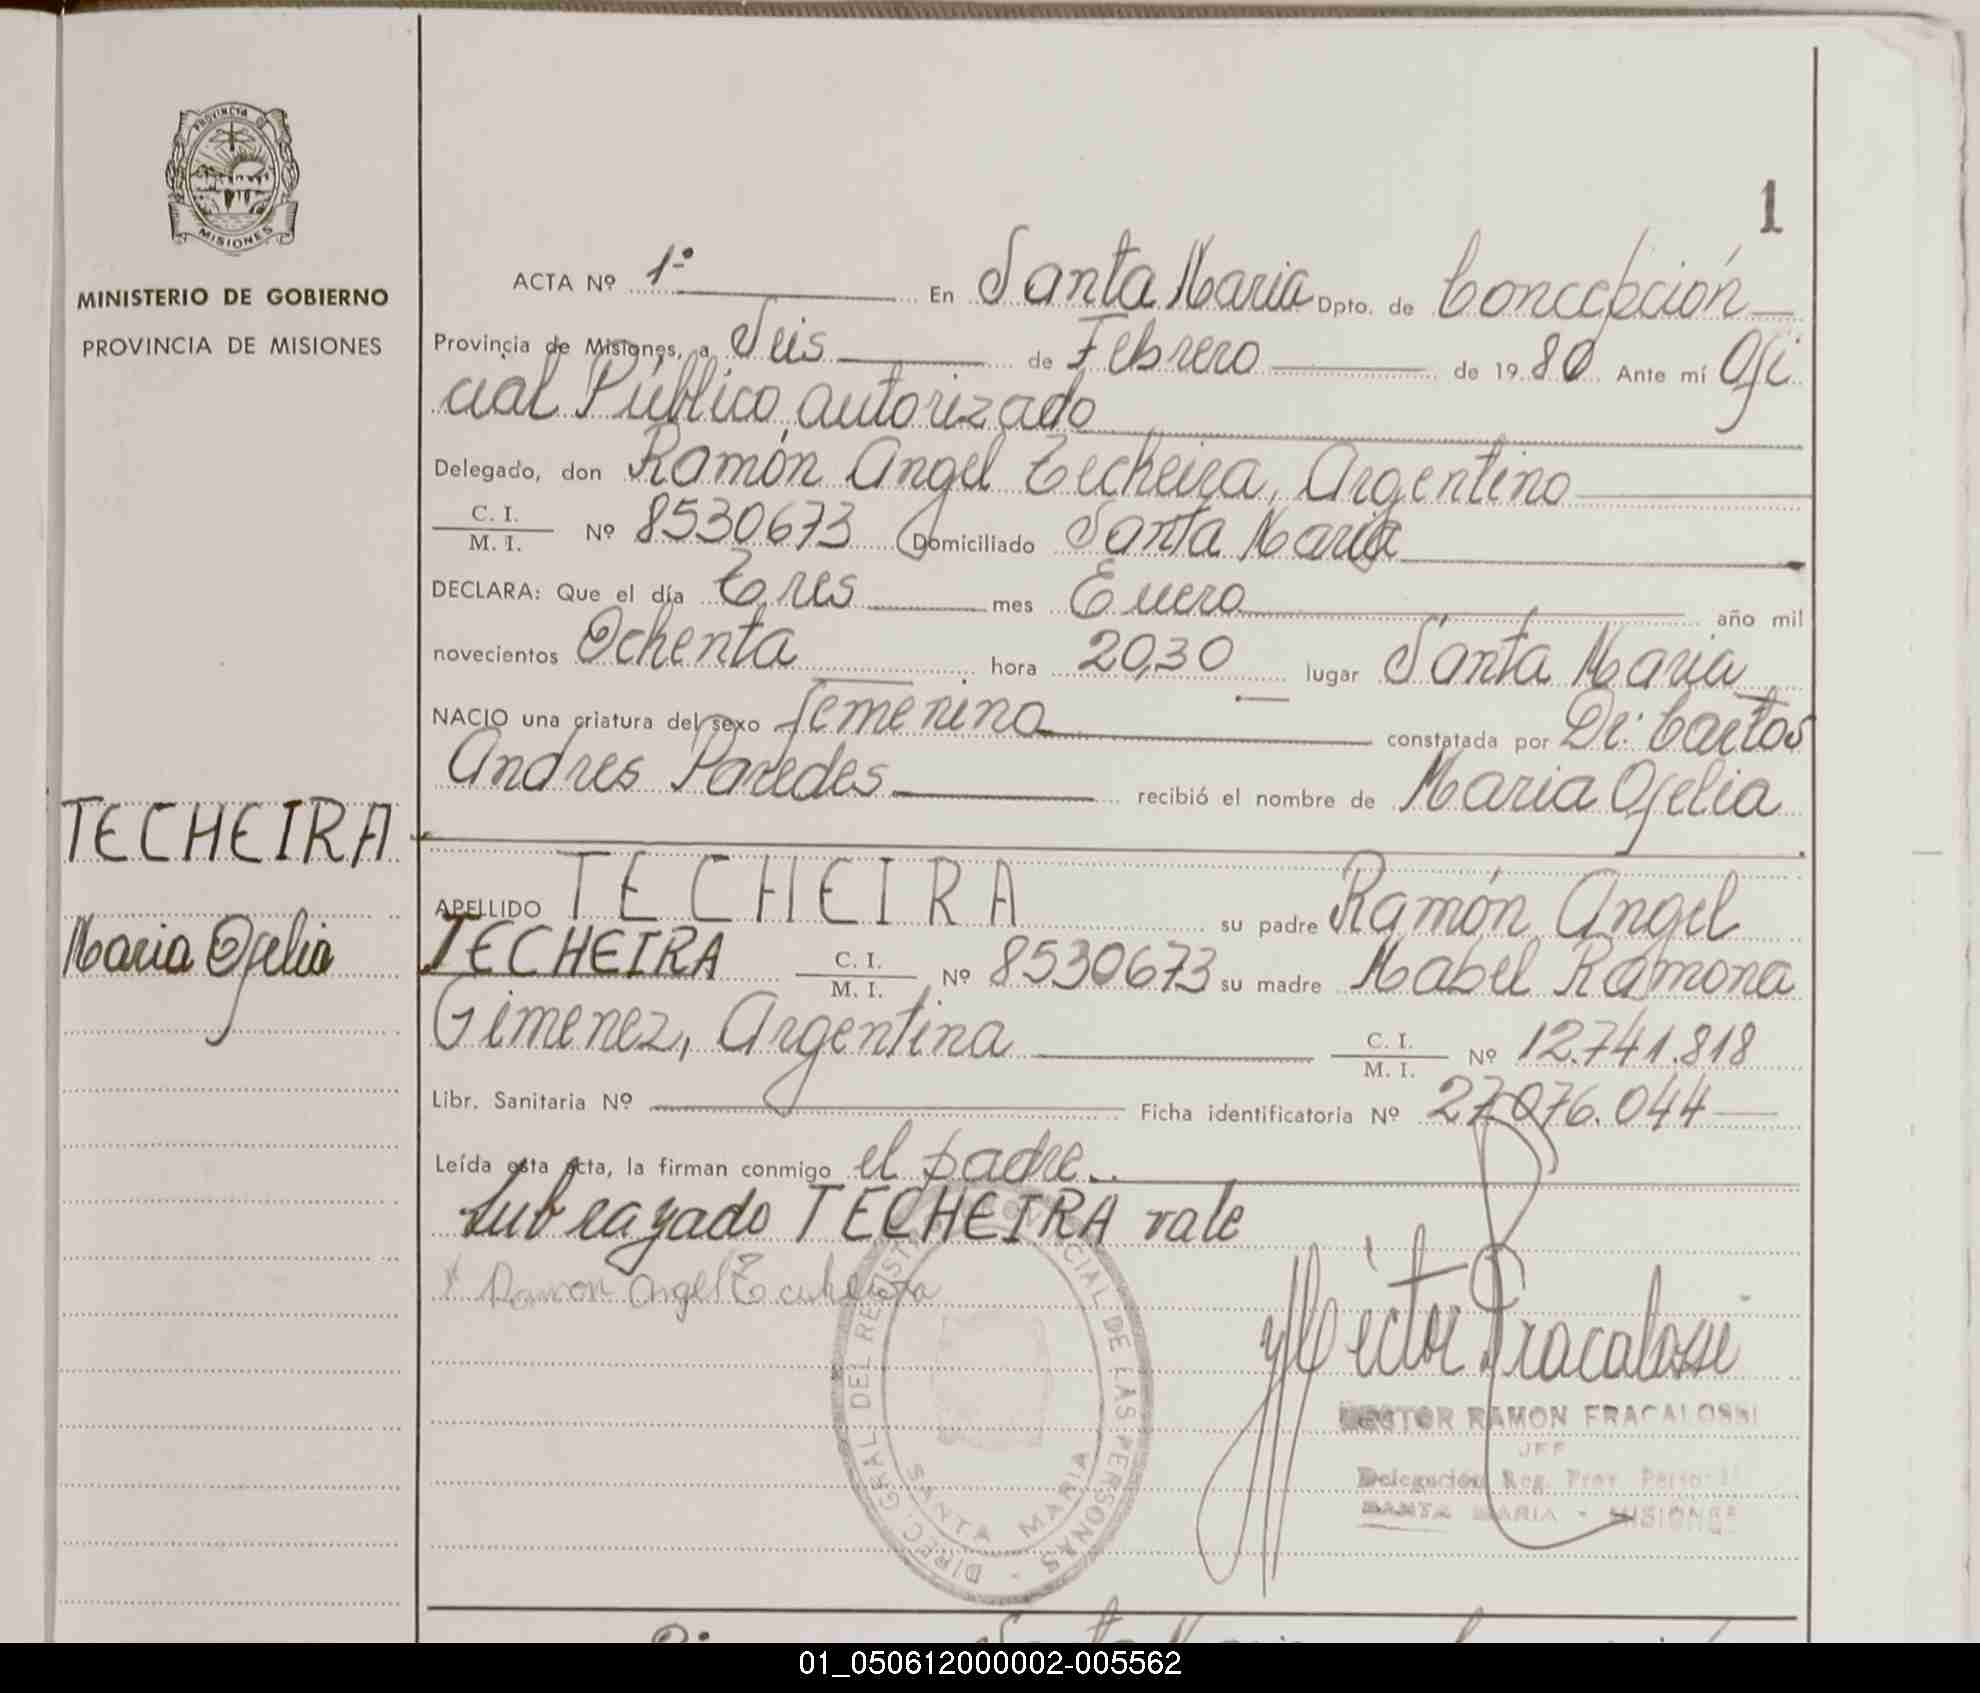 PROVINCIA DE
MISIONES
MINISTERIO DE GOBIERNO
PROVINCIA DE MISIONES
TECHEIRA
Maria Ofelia
1
ACTA Nº 1º En Santa Maria Dpto. de Concepción
Provincia de Misiones, a Seis de Febrero de 1980 Ante mí Ofi
cial Público autorizado
Delegado, don Ramón Angel Techeira, Argentino
C. I.
M. I. Nº 8530673 Domiciliado Santa Maria
DECLARA: Que el día Tres mes Enero año mil
novecientos Ochenta hora 20,30 lugar Santa Maria
NACIO una criatura del sexo femenino constatada por Dr: Carlos
Andres Paredes recibió el nombre de Maria Ofelia
APELLIDO TECHEIRA su padre Ramón Angel
TECHEIRA C. I. M. I. Nº 8530673 su madre Mabel Ramona
Gimenez, Argentina C. I. M. I. Nº 12.741.818
Libr. Sanitaria Nº Ficha identificatoria Nº 27.076.044
Leída esta acta, la firman conmigo el padre..
Subrayado TECHEIRA vale
Ramon Angel Techeira
Hector Fracalossi
HECTOR RAMON FRACALOSSI
JEFE
Delegación Reg. Prov.
SANTA MARIA - MISIONES
DIREC. GRAL DEL REGISTRO PROVINCIAL DE LAS PERSONAS -
SANTA MARIA
01_050612000002-005562